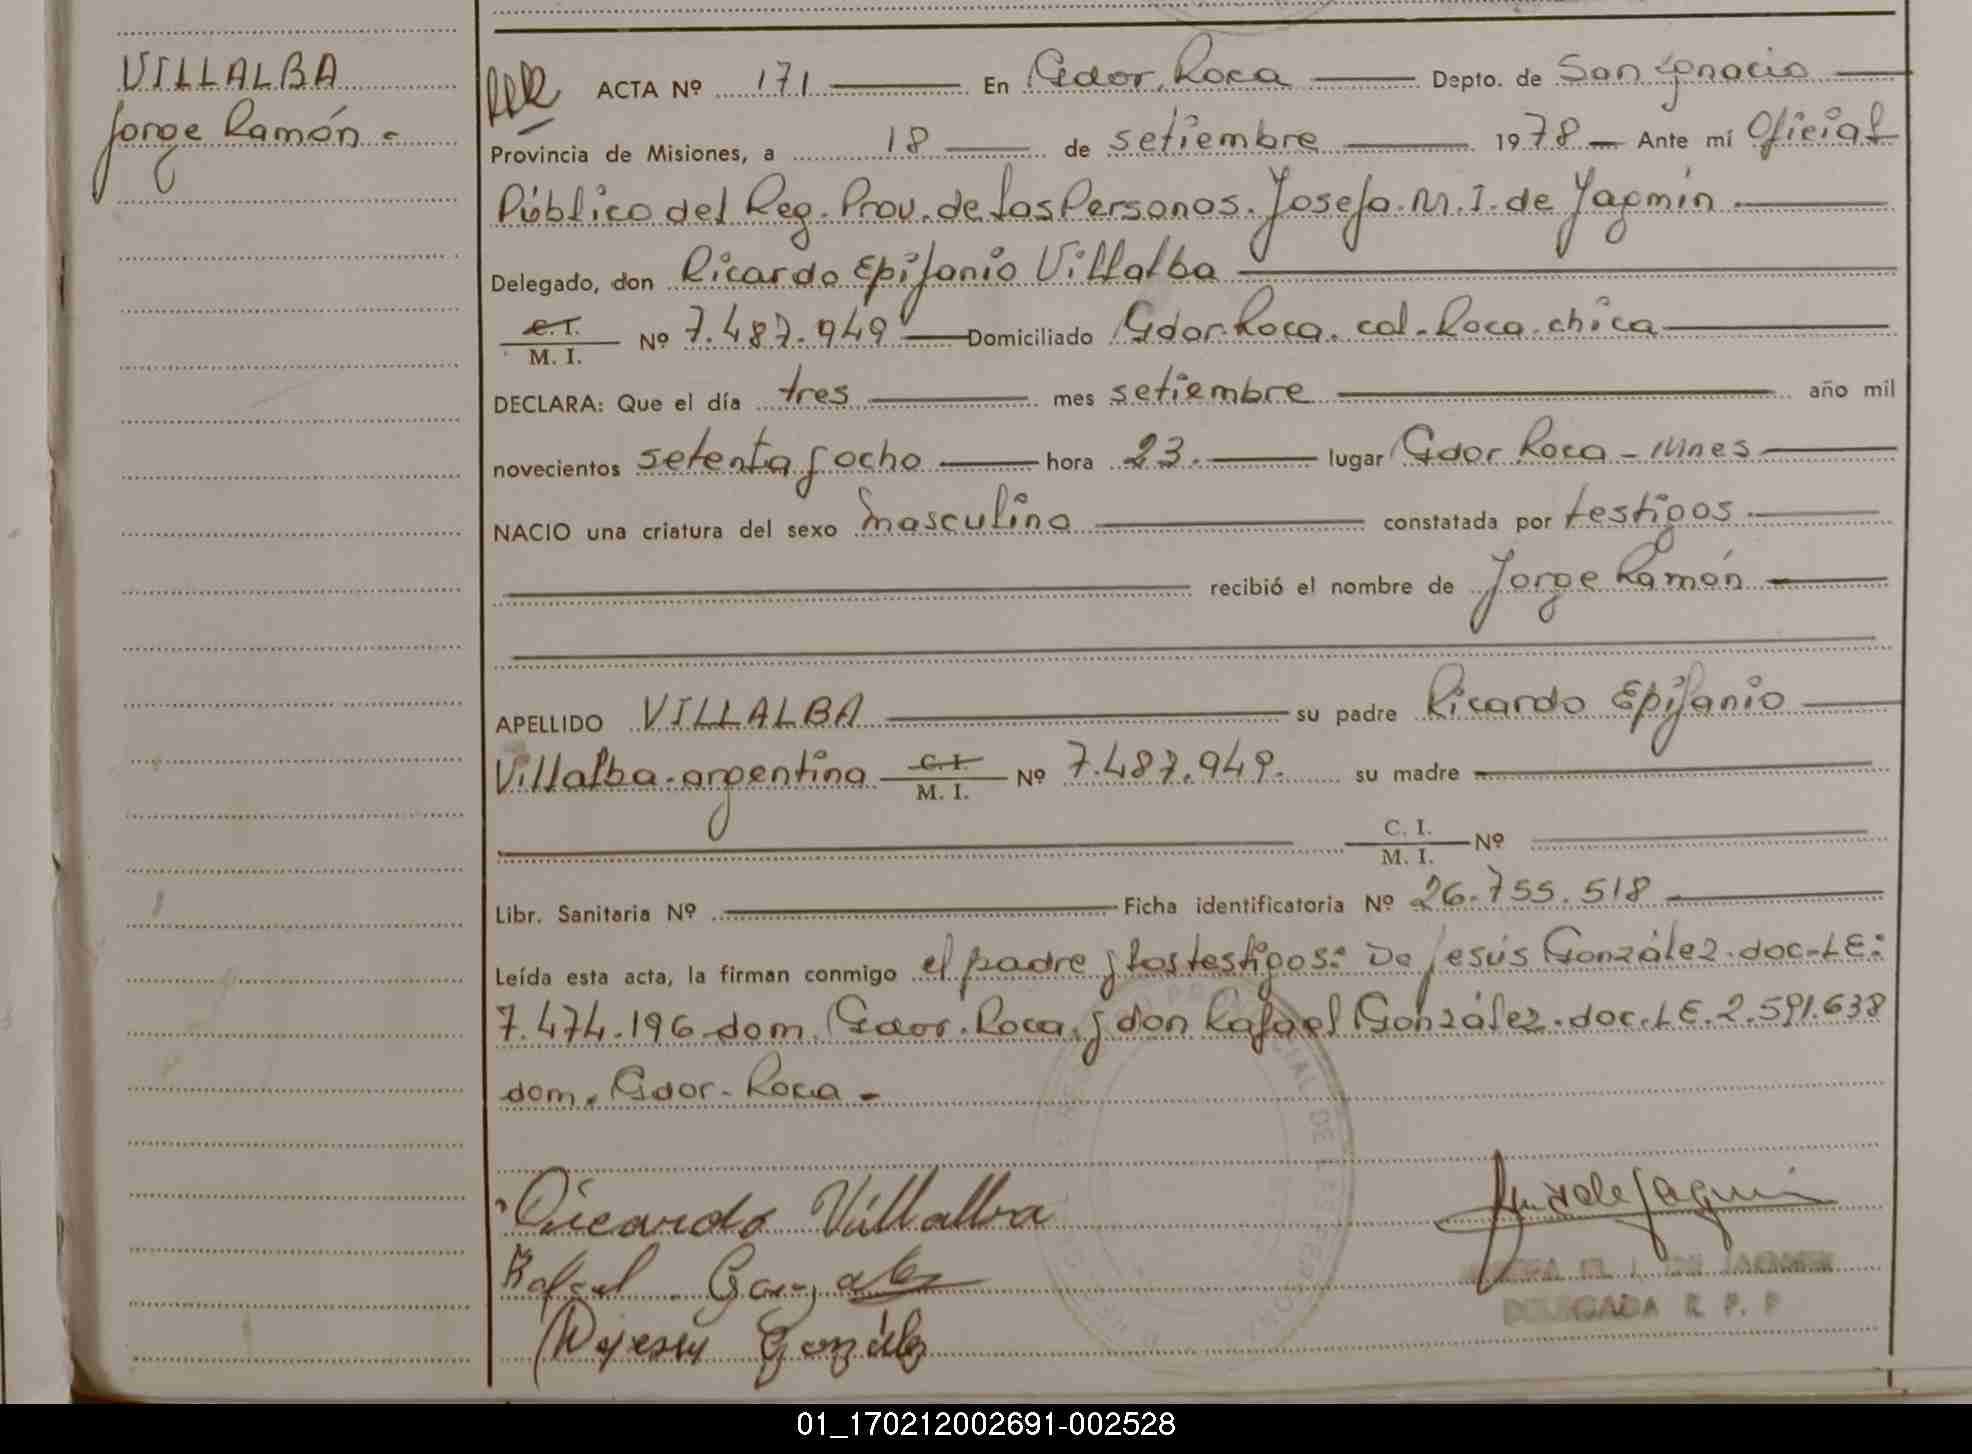 VILLALBA
Jorge Ramón -
ACTA Nº 171 En Gdor. Roca Depto. de San Ignacio
Provincia de Misiones, a 18 de setiembre 1978 - Ante mí Oficial
Público del Reg. Prov. de las Personas. Josefa. M. I. de Yagmín
Delegado, don Ricardo Epifanio Villalba
C. I.
M. I. Nº 7.487.949 Domiciliado Gdor. Roca. col. Roca. chica
DECLARA: Que el día tres mes setiembre año mil
novecientos setenta y ocho hora 23. lugar Gdor Roca - Mnes
NACIO una criatura del sexo masculino constatada por testigos
recibió el nombre de Jorge Ramón
APELLIDO VILLALBA su padre Ricardo Epifanio
Villalba. argentina C. I.
M. I. Nº 7.487.949. su madre
C. I.
M. I. Nº
Libr. Sanitaria Nº Ficha identificatoria Nº 26.755.518
Leída esta acta, la firman conmigo el padre y los testigos: De jesús González. doc. LE:
7.474.196 dom. Gdor. Roca. y don Rafael González. doc. LE. 2.591.638
dom. Gdor. Roca -
Ricardo Villalba
Rafael Gonzalez
Dejesus González
DELEGADA R. P. P
01_170212002691-002528